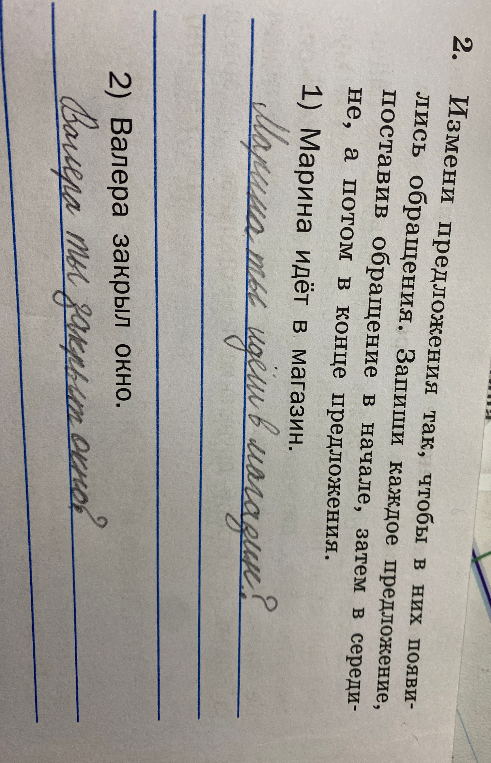 2. Измени предложения так, чтобы в них появи-
лись обращения. Запиши каждое предложение,
поставив обращение в начале, затем в середи-
не, а потом в конце предложения.
1) Марина идёт в магазин.
Марина ты идёш в магазин?
2) Валера закрыл окно.
Валера ты закрыт окно?